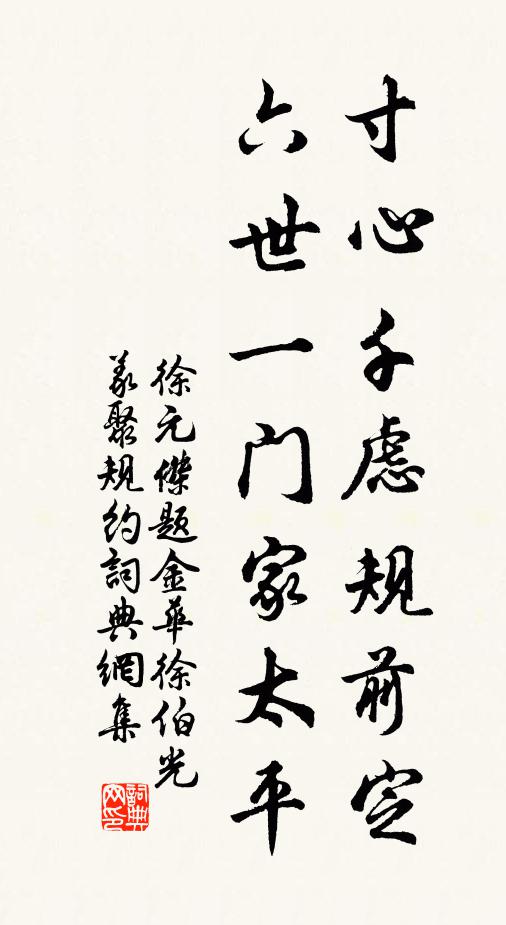 寸心千虑规前定
六世一门家太平
徐元杰题金华徐伯光
义聚规约词典网集
詞典
网印